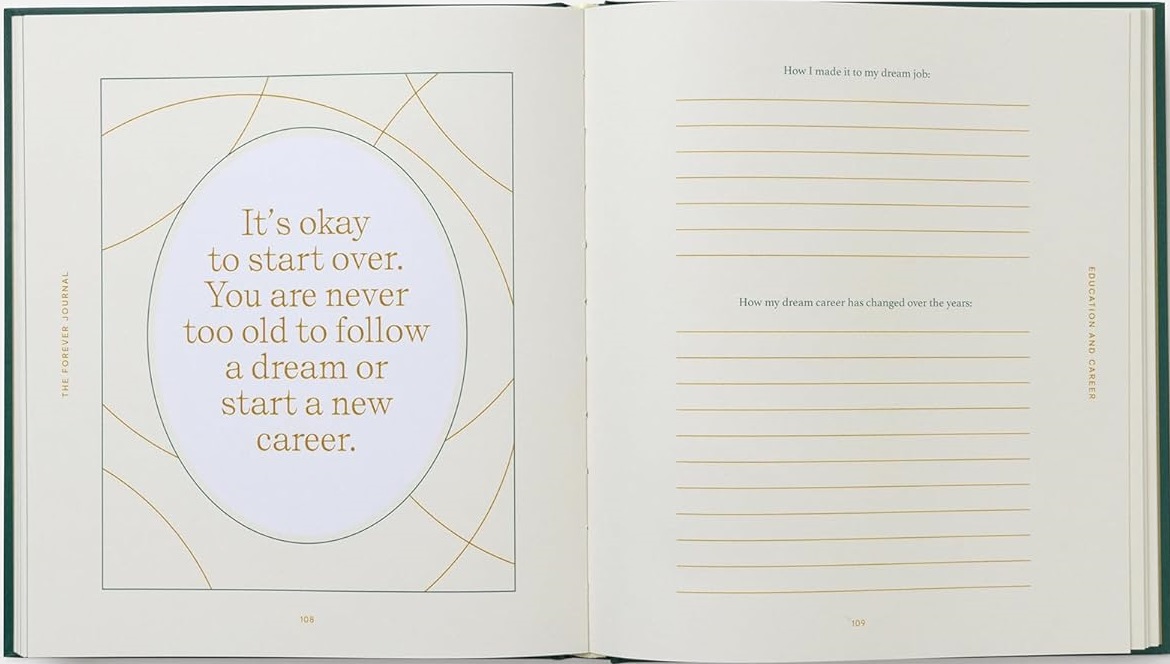 THE FOREVER JOURNAL
It's okay
to start over.
You are never
too old to follow
a dream or
start a new
career.
108
How I made it to my dream job:
How my dream career has changed over the years:
EDUCATION AND CAREER
109